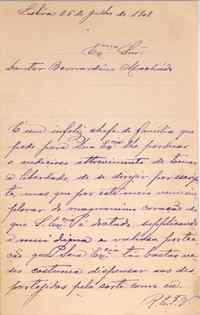 Lisboa 25 de Julho de 1901
Exmo Snr.
Doutor Bernardino Machado
É um infeliz chefe de familia que
pede para Sua Exa lhe perdoar
o audicioso attrevimento de tomar
a liberdade, de se dirigir por
mas que por este meio vem im
plorar do magnanimo coração
que S. Exa é dotado, supplicando
a mui digna e valiosa protec
ção que Sua Exa tão
costuma dispensar aos des
protegidos pela sorte como eu.